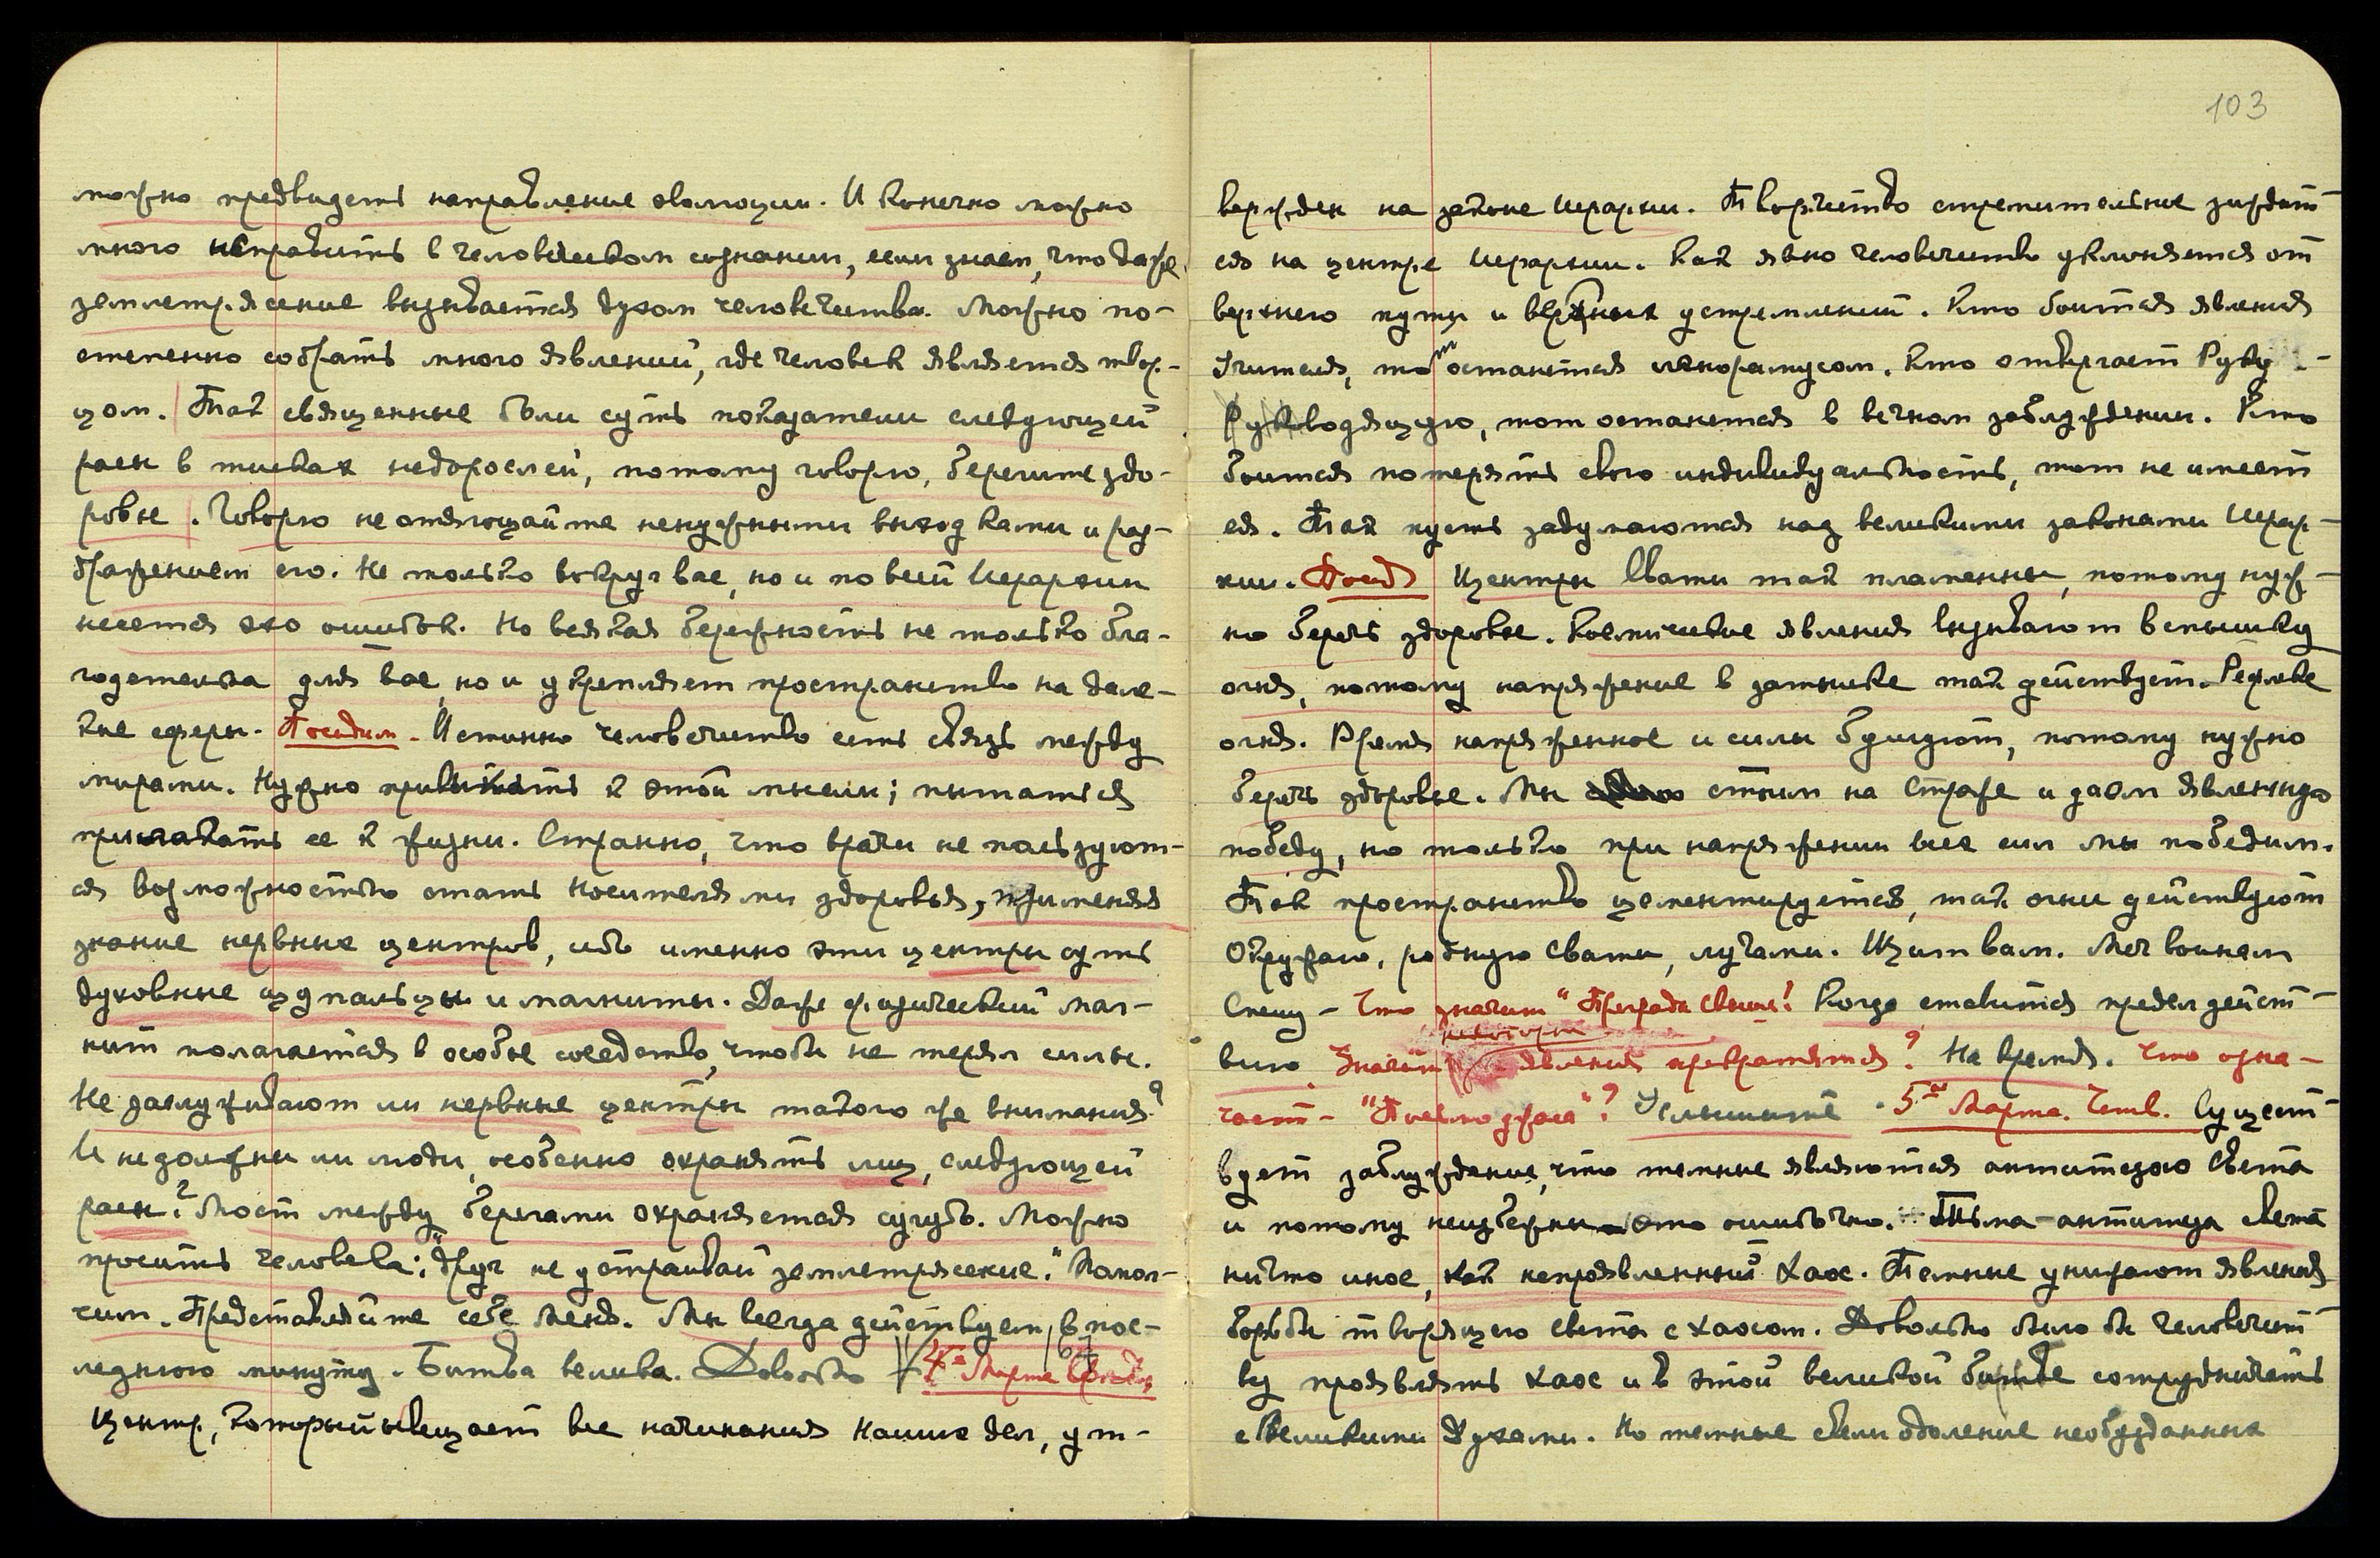 можно предвидеть направление эволюции. И конечно можно
много исправить в человеческом сознании, если знаем, что даже
землетрясение вызывается духом человечества. Можно по-
степенно собрать много явлений, где человек является твор-
цом. Так священные боли суть показатели следующей
расы в тисках недорослей, потому говорю, берегите здо-
ровье. Говорю не отягощайте ненужными выходками и раз-
дражением его. Не только вокруг вас, но и по всей Иерархии
несется эхо ошибок. Но всякая бережность не только бла-
годетельна для вас, но и укрепляет пространство на дале-
кие сферы. Посидим. Истинно человечество есть связь между
мирами. Нужно привыкать к этой мысли; пытаться
прилагать ее к жизни. Странно, что врачи не пользуют-
ся возможностью стать носителями здоровья, применяя
знание нервных центров, ибо именно эти центры суть
духовные щупальцы и магниты. Даже физический маг-
нит полагается в особое соседство, чтобы не терял силы.
Не заслуживают ли нервные центры такого же внимания?
И не должны ли люди особенно охранять лиц, следующей
расы? Мост между берегами охраняется сугубо. Можно
просить человека: "Друг не устраивай землетрясение." Помол-
чим. Представляйте себе Меня. Мы всегда действуем в пос-
леднюю минуту. Битва велика. Довольно 4-е Марта Среда
Центр, который насыщает все начинания Наших дел, ут-
103
вержден на законе Иерархии. Творчество стремительное зиждет-
ся на центре Иерархии. Как явно человечество уклоняется от
верхнего пути и верхних устремлений. Кто боится явления
Учителя, тот останется игнорамусом. Кто отвергает Руку
Руководящую, тот останется в вечном заблуждении. Кто
боится потерять свою индивидуальность, тот не имеет
ея. Так пусть задумаются над великими законами Иерар-
хии. Центры Свати так пламенны, потому нуж-
но беречь здоровье. Космические явления вызывают вспышку
огня, потому напряжение в затылке так действует. Рефлекс
огня. Время напряженное и силы бушуют, потому нужно
беречь здоровье. Мы стоим на Страже и даем явленную
победу, но только при напряжении всех сил мы победим.
Так пространство цементируется, так огни действуют
Окружаю, родную Свати, лучами. Щит вам. Меч воинам
Спешу – Что значит "Преграда свыше"? Когда ставится предел дейст-
вию. Значит некоторые явления прекратятся? На время. Что озна-
чает – "Письмо ужаса"? Услышите. 5-е Марта. Четв. Сущест-
вует заблуждение, что темные являются антитезою Света
и потому неизбежны. это ошибочно. Тьма – антитеза света
ничто иное, как непроявленный Хаос. Темные унижают явления
борьбы творящего света с хаосом. Довольно было бы человечест-
ву проявлять хаос и в этой великой битве сотрудничать
с Великими Духами. Но темные свели одоление необузданных